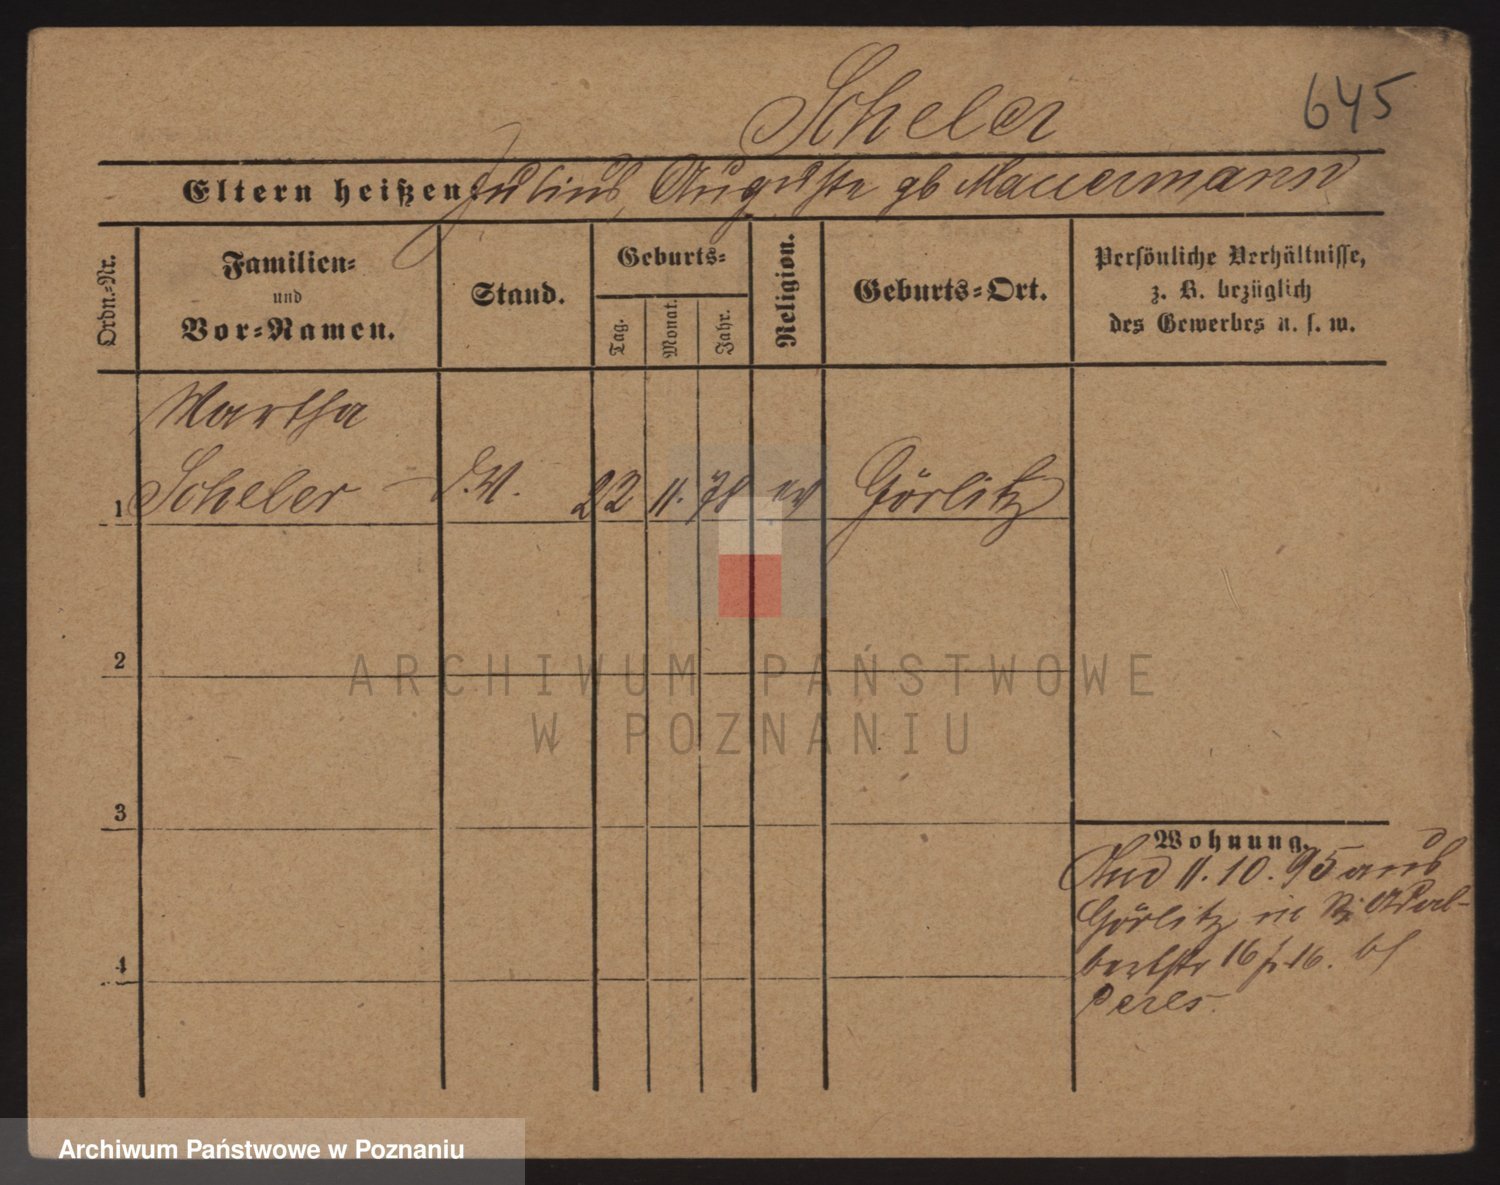 Scheler
645
Eltern heißen: Julius, Auguste gb Mauermann
Ordn.-Nr.
Familien-
und
Vor-Namen.
Stand.
Geburts-
Tag.
Monat.
Jahr.
Religion.
Geburts-Ort.
Persönliche Verhältnisse,
z. B. bezüglich
des Gewerbes u. s. w.
Martha
1 Scheler 22 11. 78 ev Görlitz
2
ARCHIWUM PAŃSTWOWE
W POZNANIU
3
Wohnung.
11. 10. 95 aus
Görlitz in Adal-
bertstr 16 16. bei
Peres.
4
Archiwum Państwowe w Poznaniu